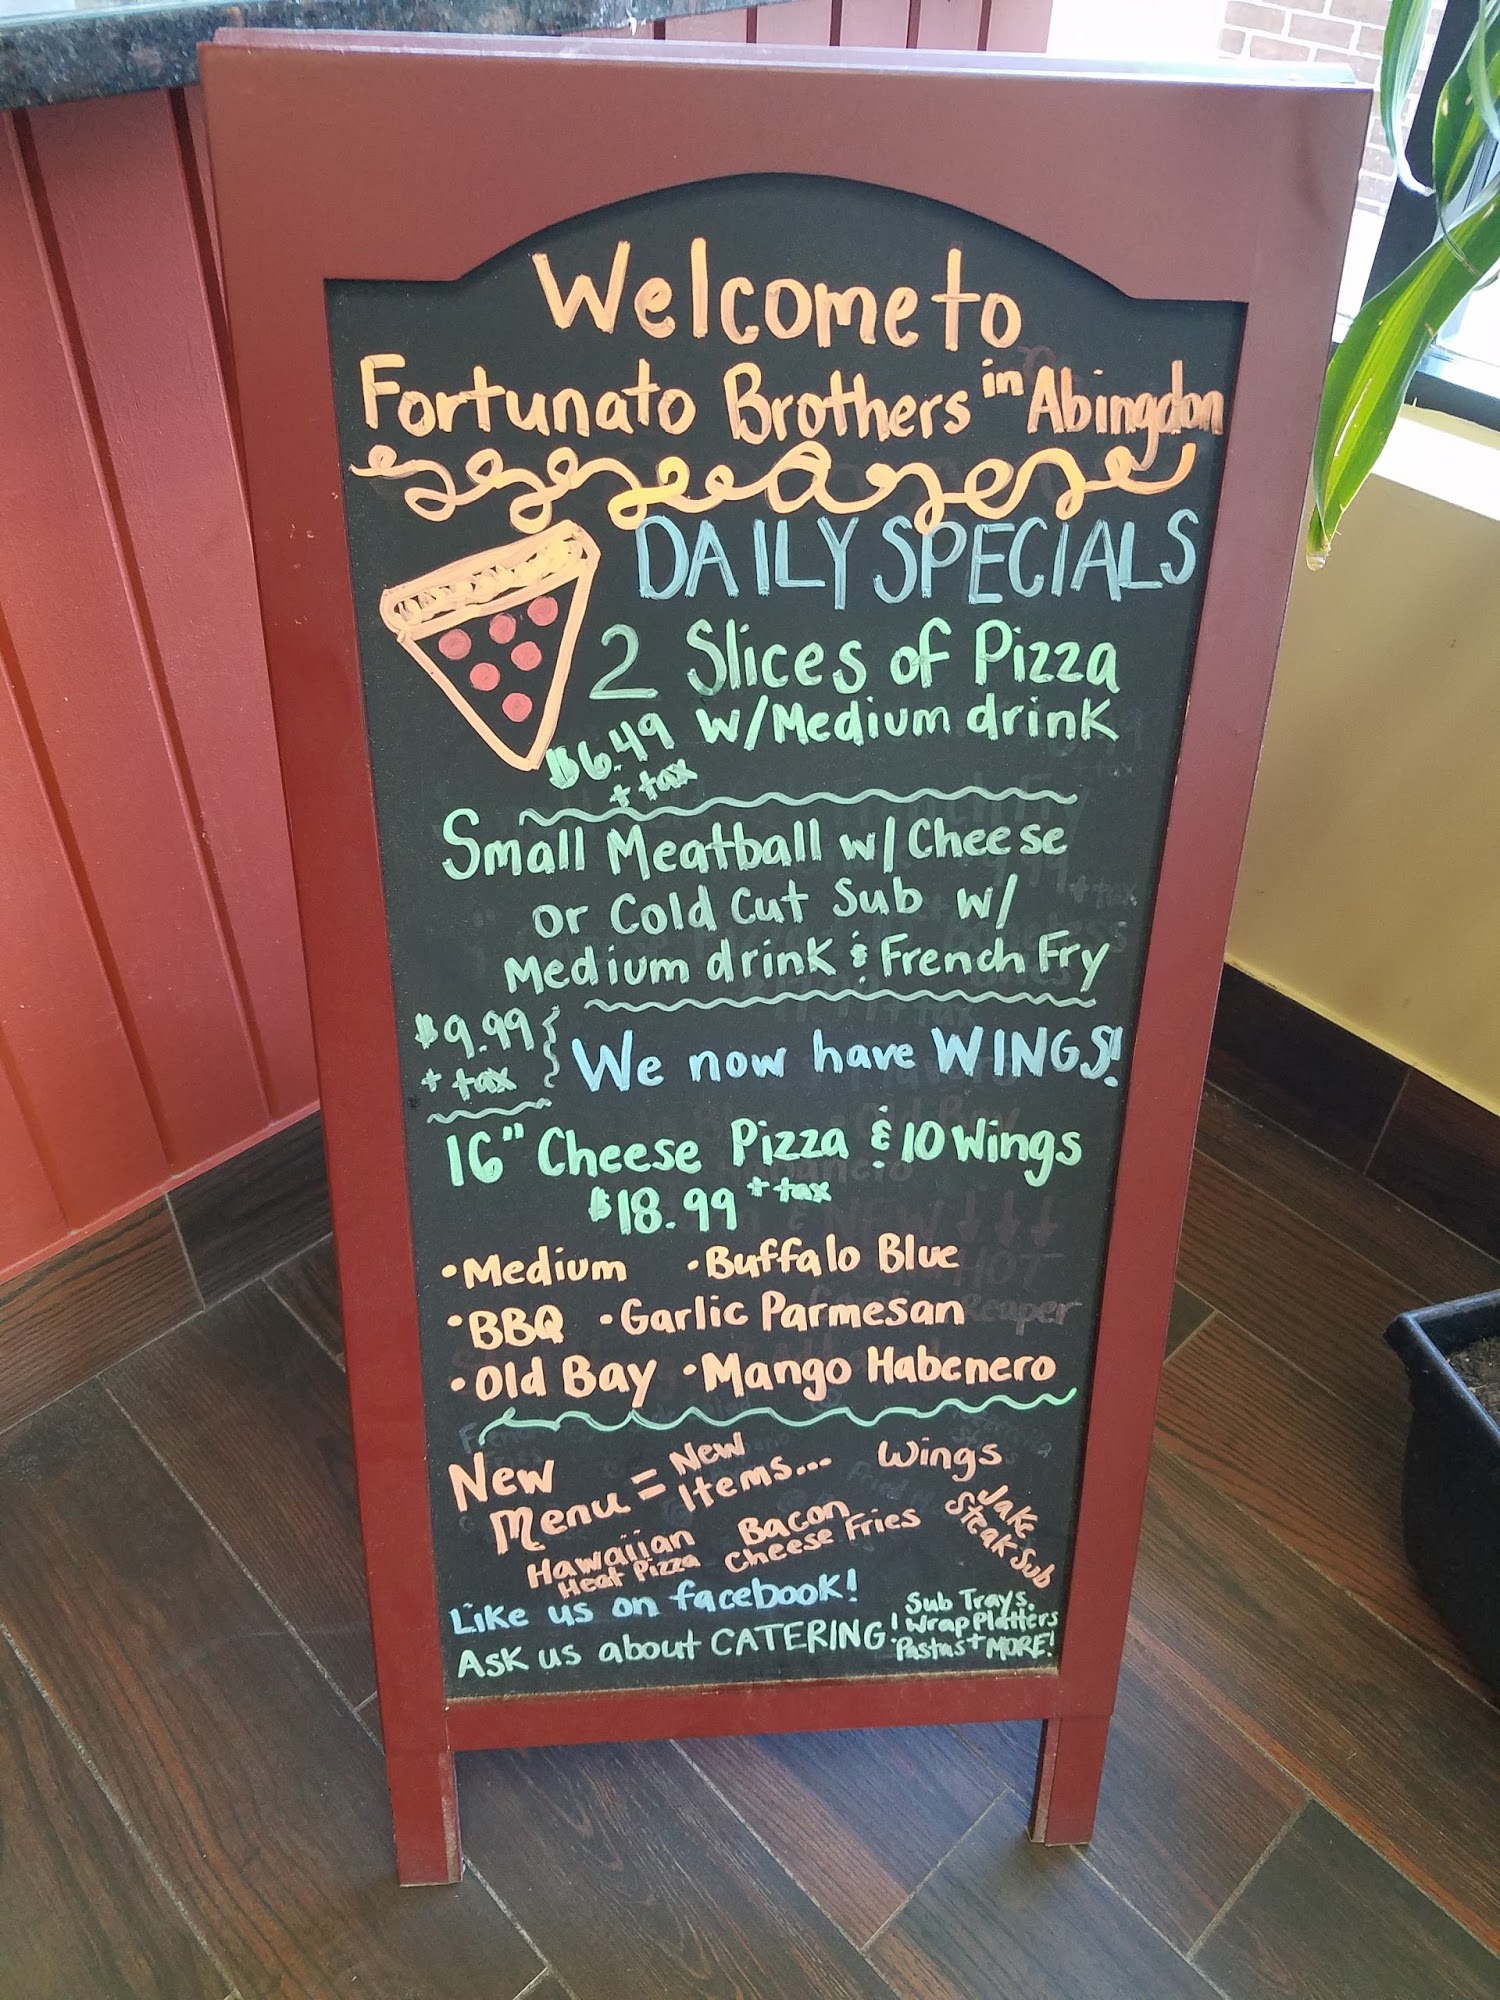 Welcome to
Fortunato Brothers in Abingdon
DAILY SPECIALS
2 Slices of Pizza
w/Medium drink
$6.49
+ tax
Small Meatball w/Cheese
or Cold Cut Sub w/
Medium drink & French Fry
$9.99
+ tax
We now have WINGS!
16" Cheese Pizza & 10 Wings
$18.99 + tax
•Medium •Buffalo Blue
•BBQ •Garlic Parmesan
•Old Bay •Mango Habenero
New
Menu = New
Items...
Wings
Jake
Steak Sub
Bacon
Cheese Fries
Hawaiian
Heat Pizza
Like us on facebook!
Ask us about CATERING!
Sub Trays.
Wrap Platters
Pastas + MORE!